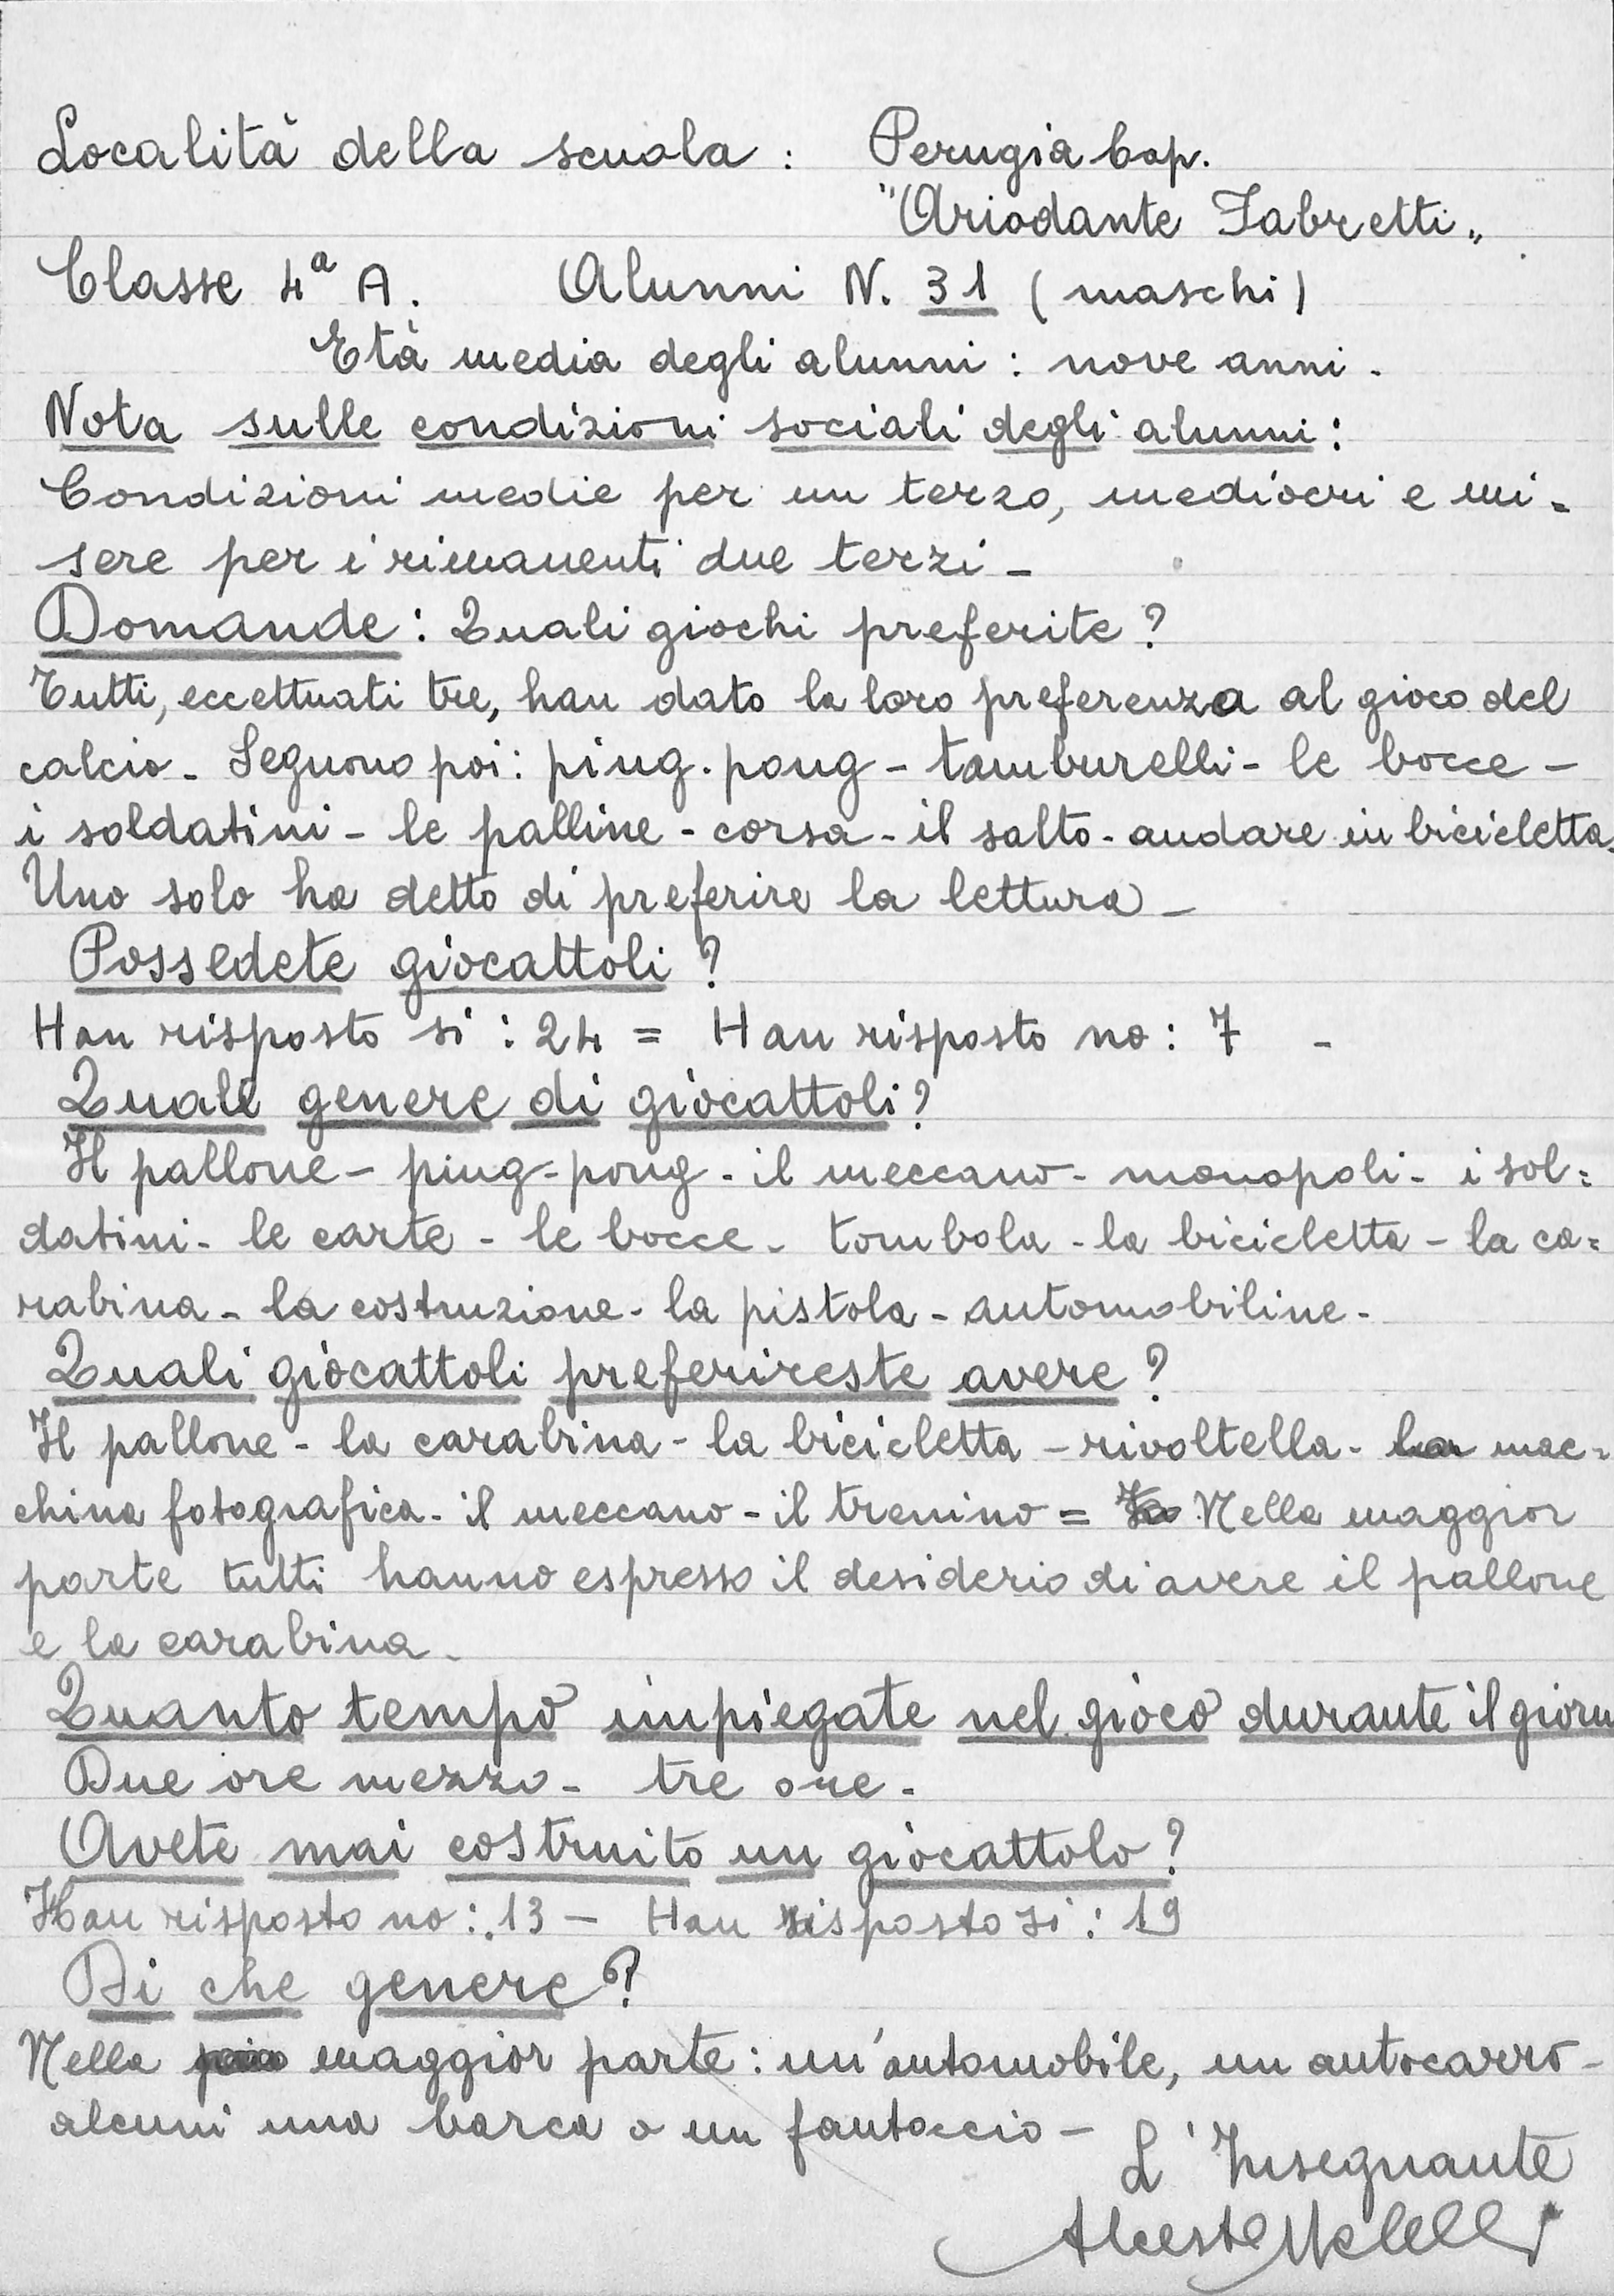 Località della scuola : Perugia Cap.
"Ariodante Fabretti„
Classe 4ª A. Alunni N. 31 (maschi)
Età media degli alunni : nove anni.
Nota sulle condizioni sociali degli alunni :
Condizioni medie per un terzo, mediocri e mi=
sere per i rimanenti due terzi -
Domande : Quali giochi preferite ?
Tutti, eccettuati tre, han dato la loro preferenza al gioco del
calcio - Seguono poi : ping-pong - tamburelli - le bocce -
i soldatini - le palline - corsa - il salto - andare in bicicletta.
Uno solo ha detto di preferire la lettura -
Possedete giocattoli ?
Han risposto si : 24 = Han risposto no : 7 -
Quale genere di giocattoli ?
Il pallone - ping-pong - il meccano - monopoli - i sol=
datini - le carte - le bocce - tombola - la bicicletta - la ca=
rabina - la costruzione - la pistola - automobiline -
Quali giocattoli preferireste avere ?
Il pallone - la carabina - la bicicletta - rivoltella - mac=
china fotografica - il meccano - il trenino = Nella maggior
parte tutti hanno espresso il desiderio di avere il pallone
e la carabina -
Quanto tempo impiegate nel gioco durante il giorn
Due ore mezzo - tre ore -
Avete mai costruito un giocattolo ?
Han risposto no : 13 - Han risposto si : 19
Di che genere ?
Nella maggior parte : un'automobile, un autocarro -
alcuni una barca o un fantoccio -
L'Insegnante
Alceste